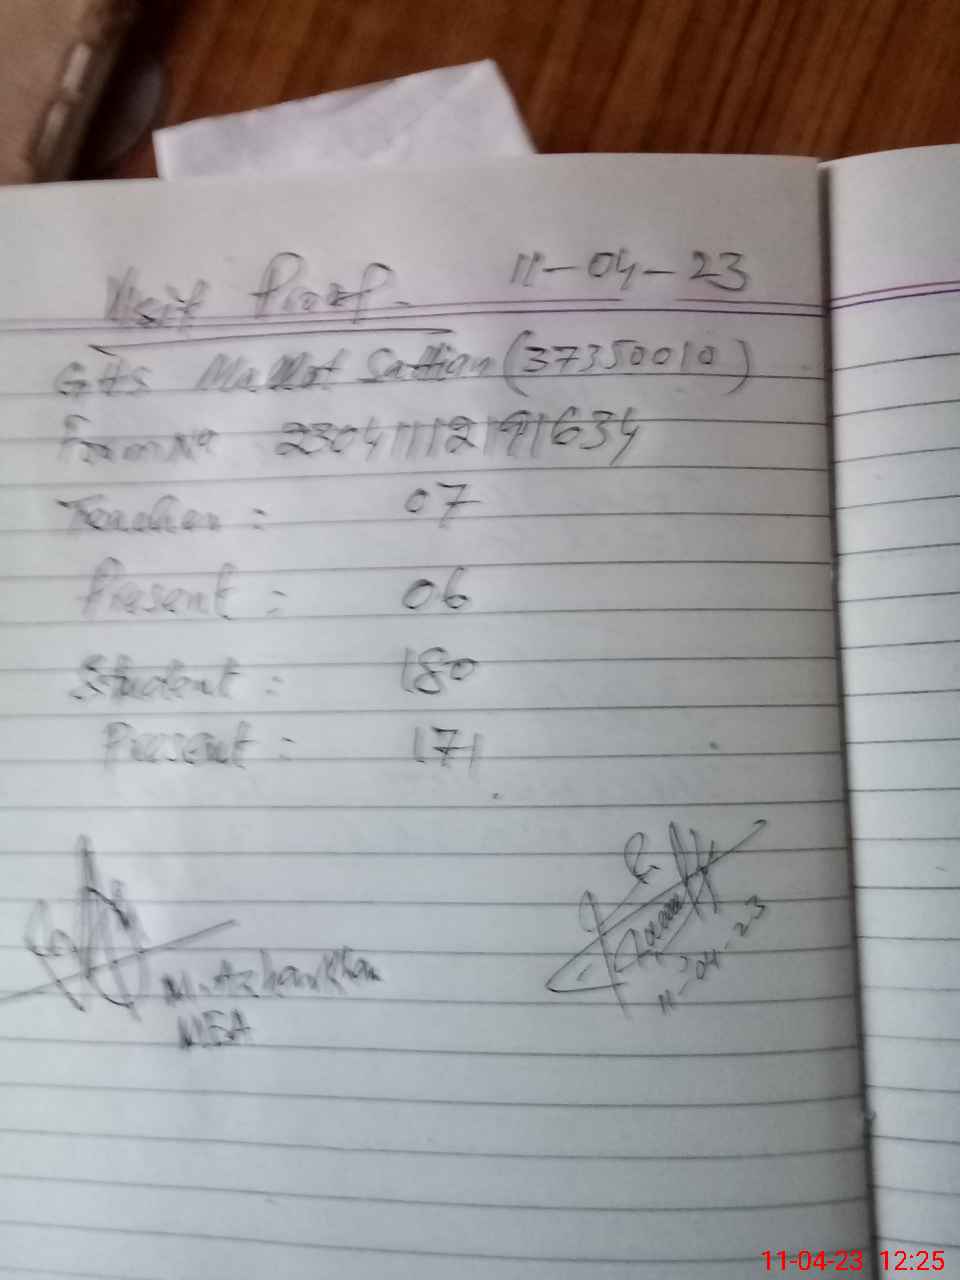 Visit Proof. 11-04-23
GHS Mallot Sattian (37350010)
Form No
Teacher : 07
Present : 06
Student : 180
Present : 171
M. Azhar Khan
MEA
11-04-23
11-04-23 12:25